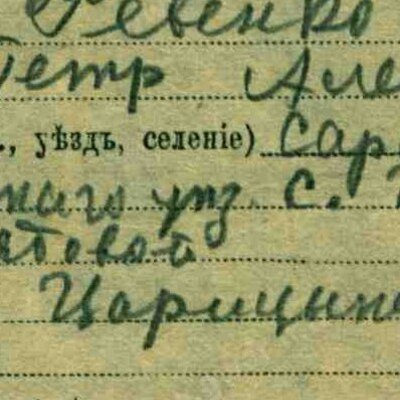 Ревенко
Петр Але
., уѣздъ, селеніе) Сар
каго уѣз. с.
атовой
Царицын